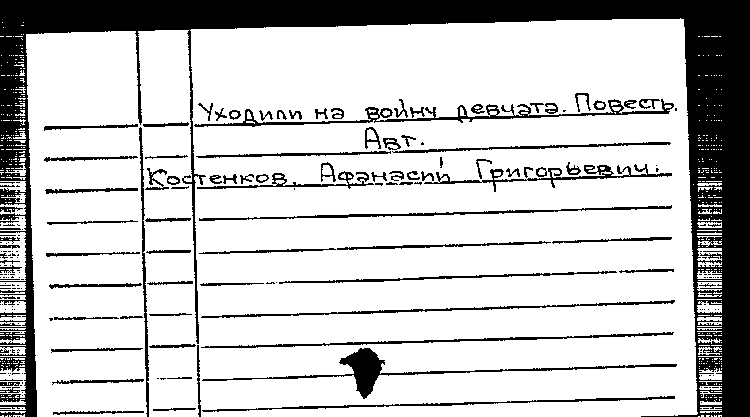 Уходили на войну девчата. Повесть.
Авт.
Костенков. Афанасий Григорьевич.